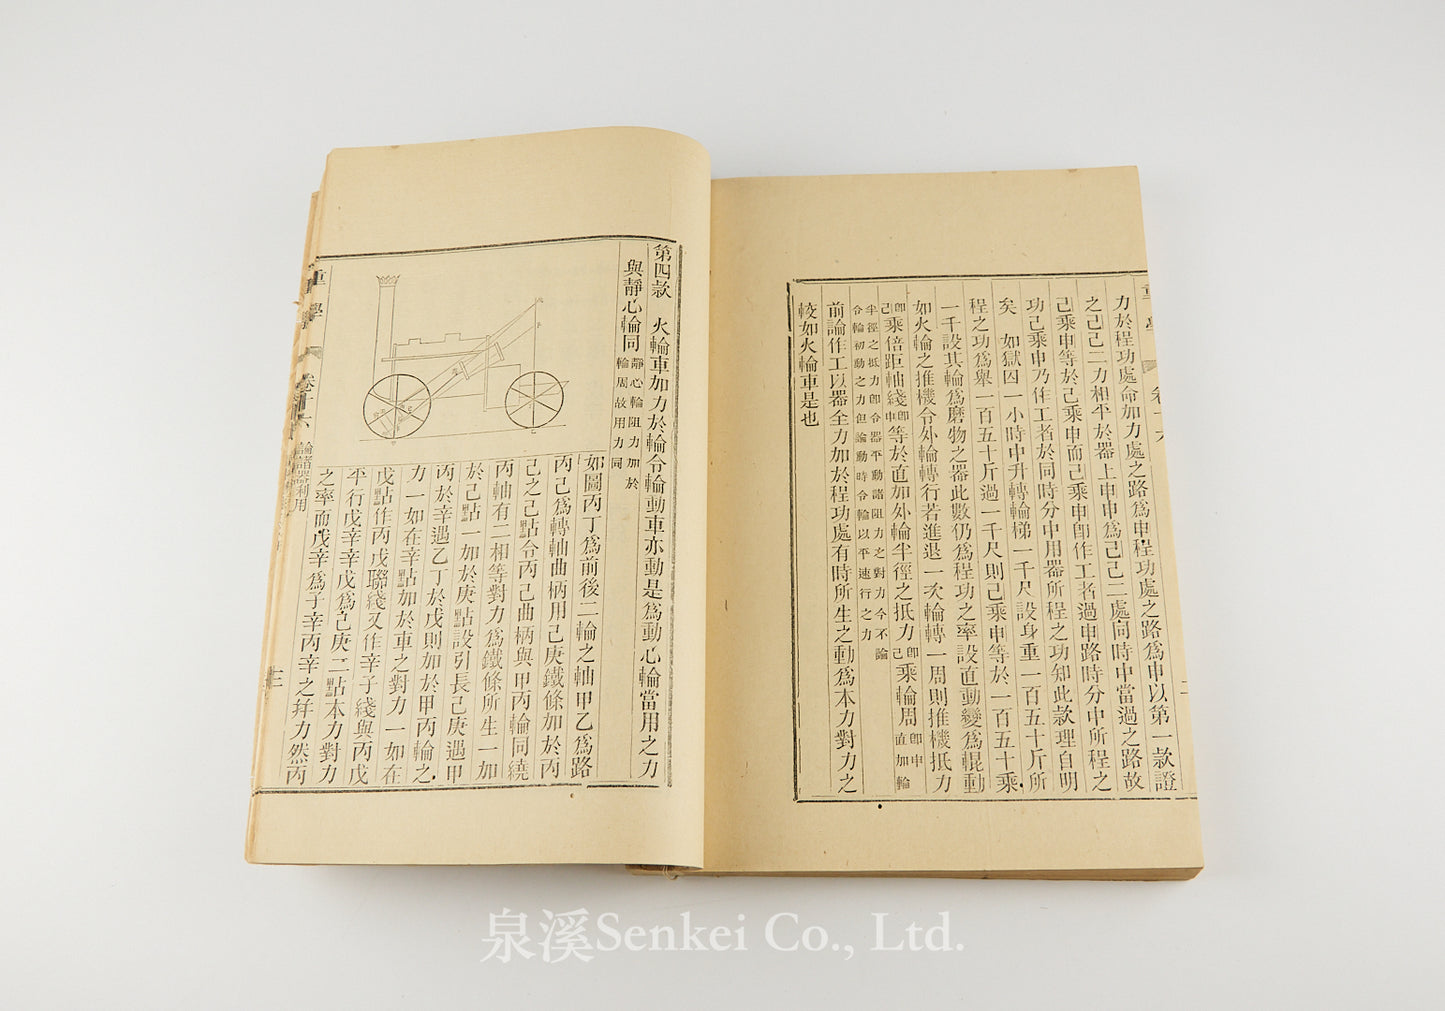 力於程功處命加力處之路爲申程功處之路爲申以第一款證
之己己二力相平於器上申申爲己己二處同時中當過之路故
己乘申等於己乘申而己乘申卽作工者過申路時分中所程之
功己乘申乃作工者於同時分中用器所程之功知此款理自明
矣 如獄囚一小時中升轉輪梯一千尺設身重一百五十斤所
程之功爲舉一百五十斤過一千尺則己乘申等於一百五十乘
一千設其輪爲磨物之器此數仍爲程功之率設直動變爲輥動
如火輪之推機令外輪轉行若進退一次輪轉一周則推機抵力
卽己乘倍距軸綫卽申等於直加外輪半徑之抵力卽己乘輪周卽申直加輪
半徑之抵力卽令器平動諸阻力之對力今不論
令輪初動之力但論動時令輪以平速行之力
前論作工以器全力加於程功處有時所生之動爲本力對力之
較如火輪車是也
第四款 火輪車加力於輪令輪動車亦動是爲動心輪當用之力
與靜心輪同靜心輪阻力加於輪周故用力同
如圖丙丁爲前後二輪之軸甲乙爲路
丙己爲轉軸曲柄用己庚鐵條加於丙
己之己點令丙己曲柄與甲丙輪同繞
丙軸有二相等對力爲鐵條所生一加
於己點一加於庚點設引長己庚遇甲
丙於辛遇乙丁於戊則加於甲丙輪之
力一如在辛點加於車之對力一如在
戊點作丙戊聯綫又作辛子綫與丙戊
平行戊辛辛戊爲己庚二點本力對力
之率而戊辛爲子辛丙辛之并力然丙
重學 卷十六 論諸器利用 三